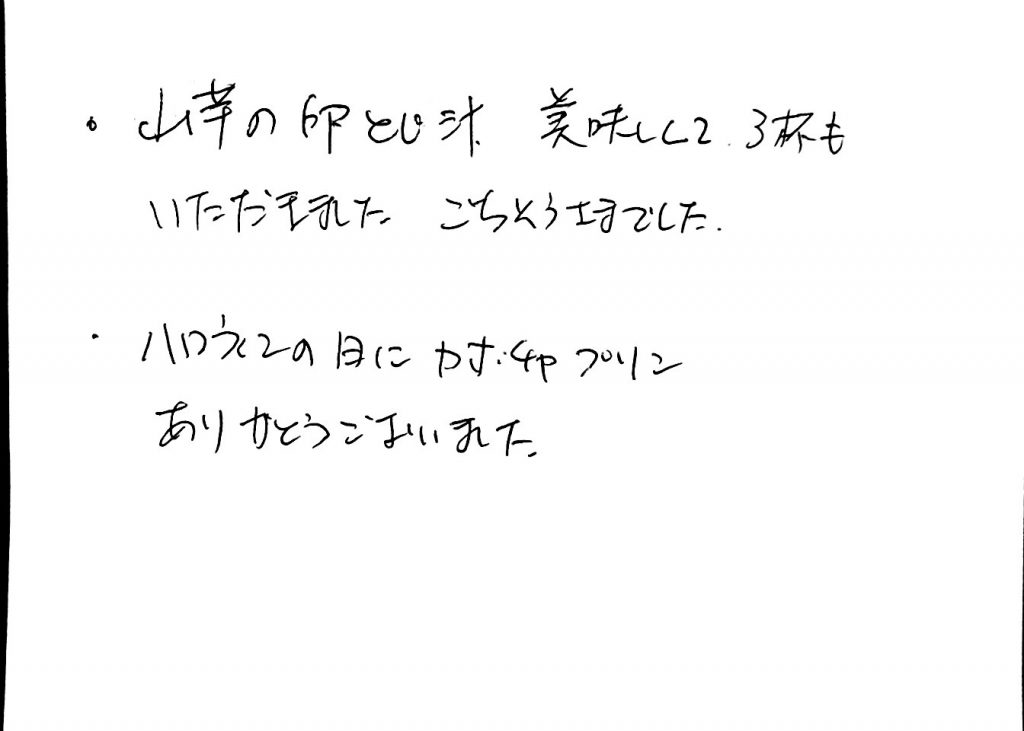 ・山芋の卵とじ汁 美味しくて、3杯も
いただきました ごちそうさまでした.
・ハロウィンの日に カボチャプリン
ありがとうございました.